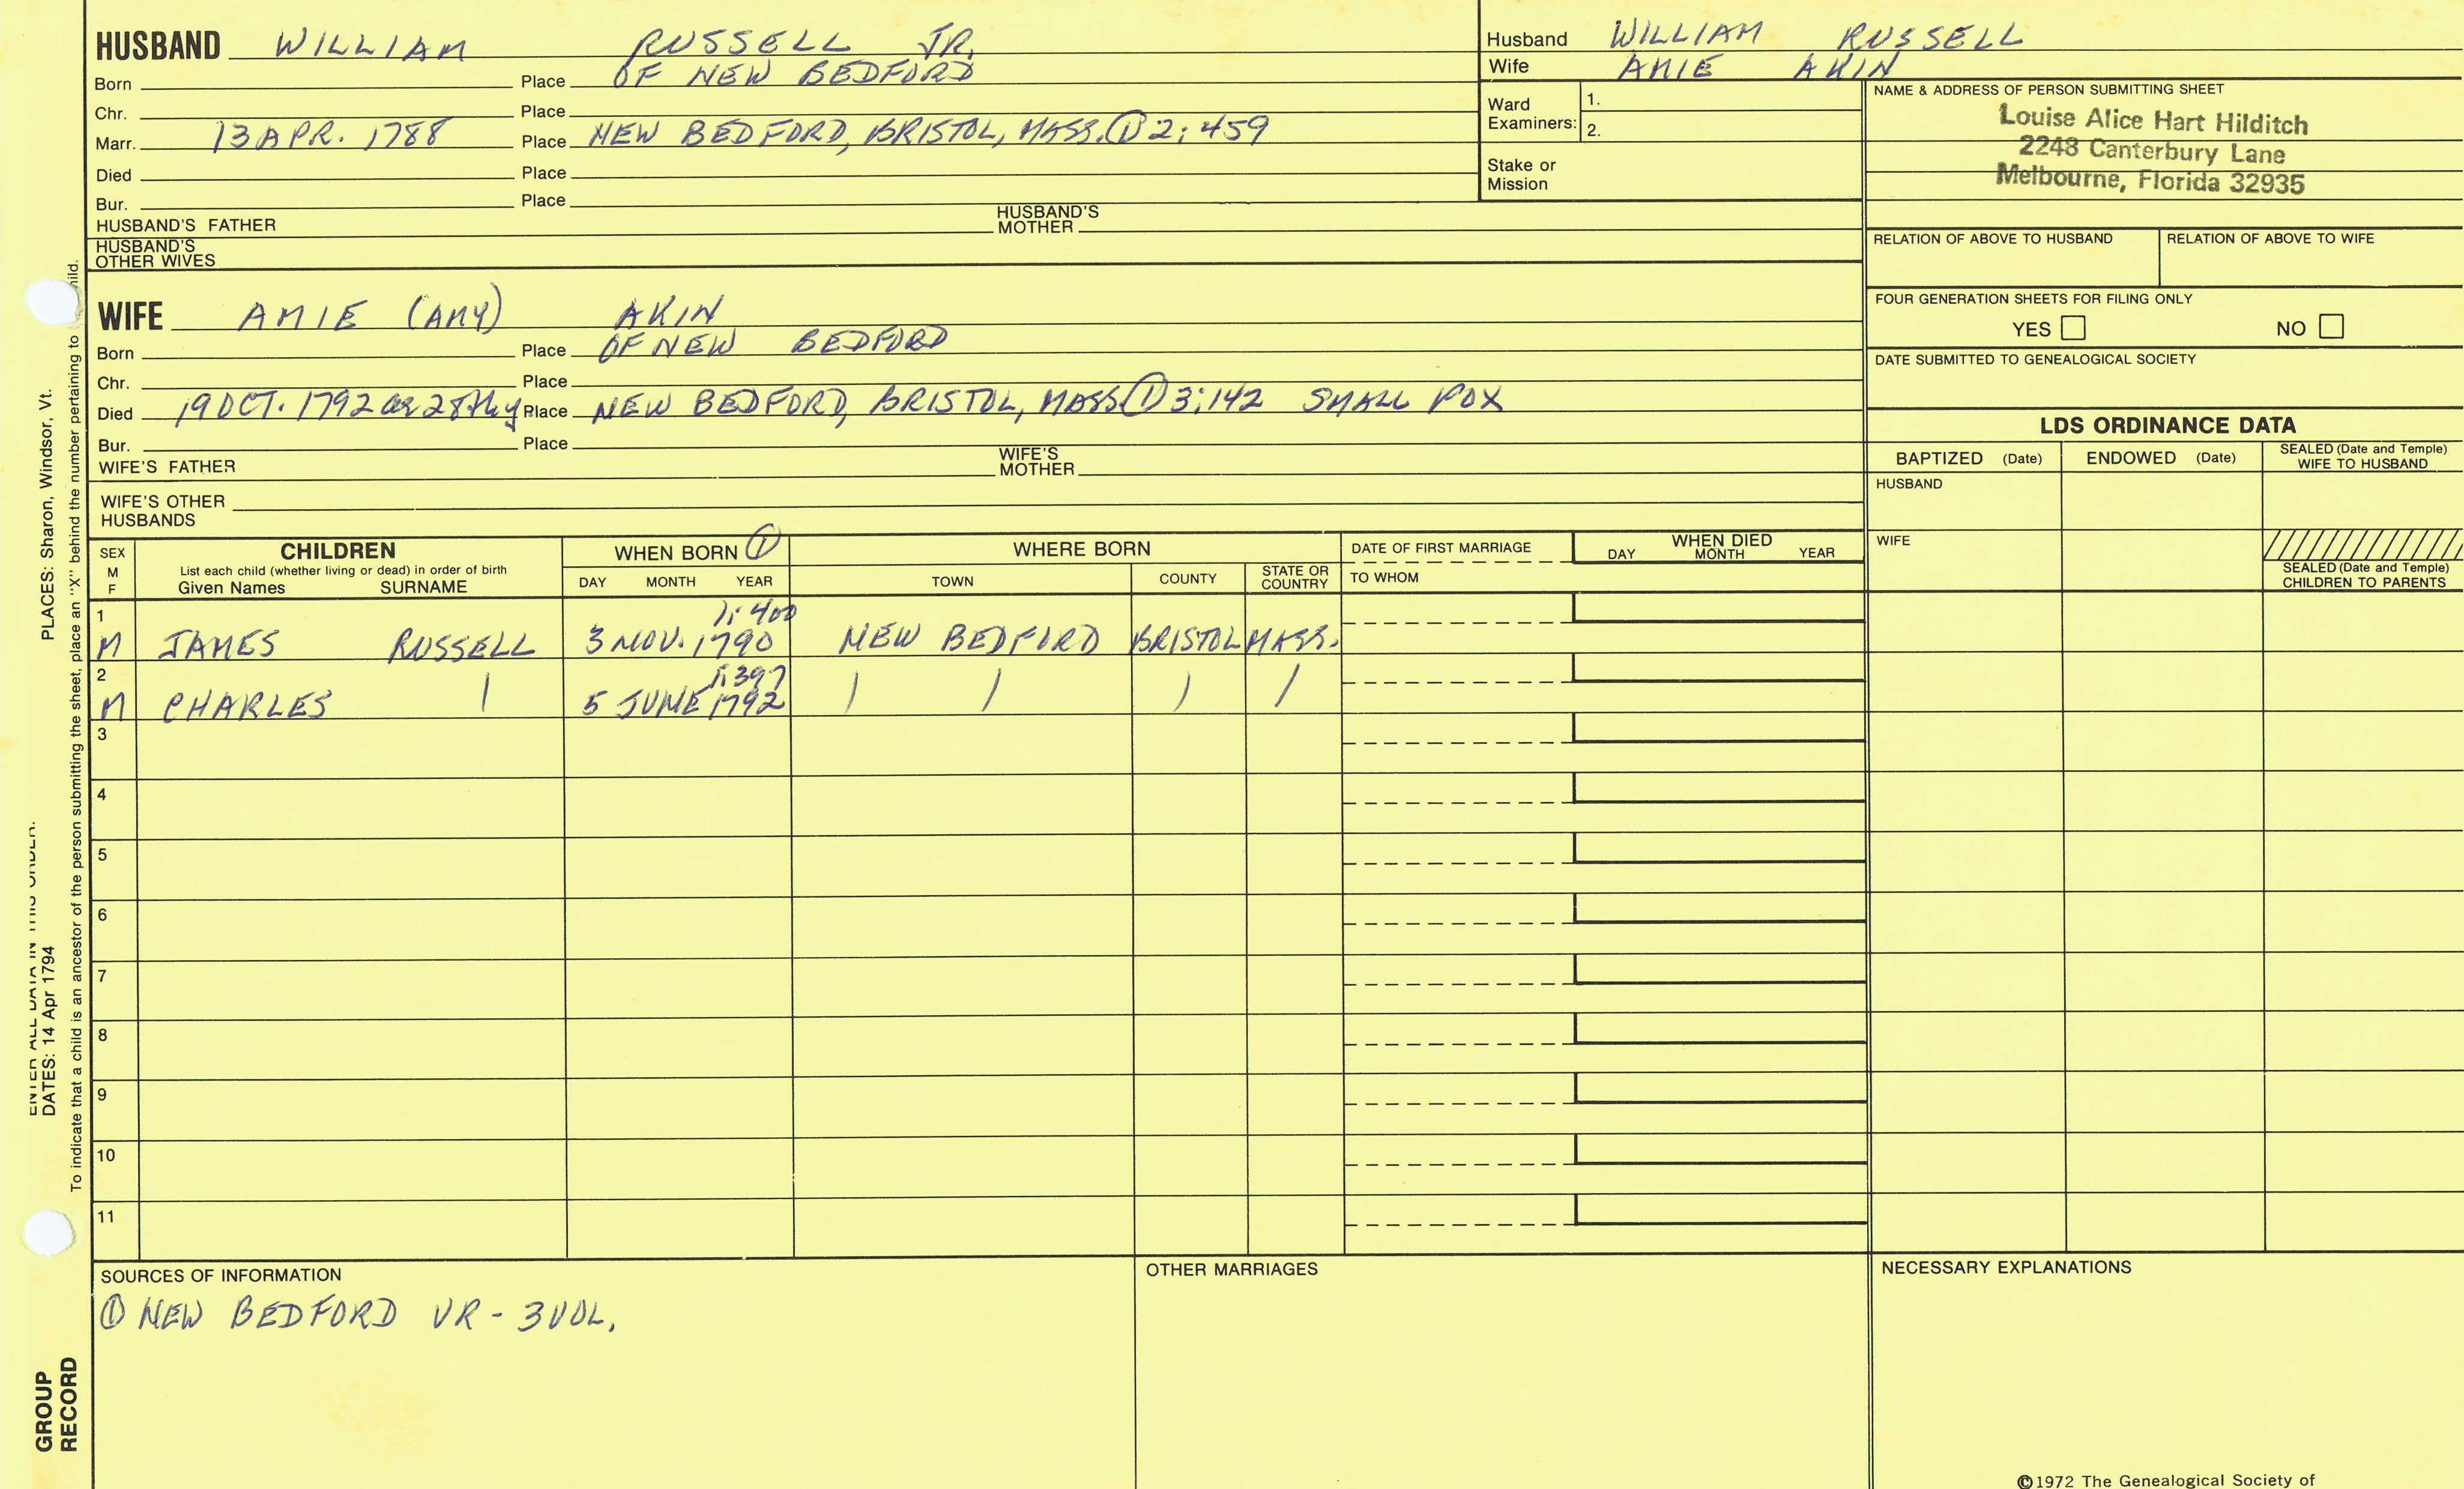 HUSBAND WILLIAM RUSSELL JR.
Born Place OF NEW BEDFORD
Chr. Place
Marr. 13 APR. 1788 Place NEW BEDFORD, BRISTOL, MASS. ① 2:459
Died Place
Bur. Place
HUSBAND'S FATHER HUSBAND'S MOTHER
HUSBAND'S OTHER WIVES
Husband WILLIAM RUSSELL
Wife AMIE AKIN
Ward Examiners: 1.
2.
Stake or Mission
NAME & ADDRESS OF PERSON SUBMITTING SHEET
Louise Alice Hart Hilditch
2248 Canterbury Lane
Melbourne, Florida 32935
RELATION OF ABOVE TO HUSBAND RELATION OF ABOVE TO WIFE
FOUR GENERATION SHEETS FOR FILING ONLY
YES NO
DATE SUBMITTED TO GENEALOGICAL SOCIETY
WIFE AMIE (AMY) AKIN
Born Place OF NEW BEDFORD
Chr. Place
Died 19 OCT. 1792 28 Place NEW BEDFORD, BRISTOL, MASS ① 3:142 SMALL POX
Bur. Place
WIFE'S FATHER WIFE'S MOTHER
WIFE'S OTHER HUSBANDS
LDS ORDINANCE DATA
BAPTIZED (Date) ENDOWED (Date) SEALED (Date and Temple) WIFE TO HUSBAND
HUSBAND
WIFE
SEALED (Date and Temple) CHILDREN TO PARENTS
SEX M F
CHILDREN
List each child (whether living or dead) in order of birth
Given Names SURNAME
WHEN BORN ①
DAY MONTH YEAR
WHERE BORN
TOWN COUNTY STATE OR COUNTRY
DATE OF FIRST MARRIAGE
TO WHOM
WHEN DIED
DAY MONTH YEAR
1 1:400
M JAMES RUSSELL 3 NOV. 1790 NEW BEDFORD BRISTOL MASS.
2 1:397
M CHARLES 5 JUNE 1792
3
4
5
6
7
8
9
10
11
SOURCES OF INFORMATION
① NEW BEDFORD VR - 3 VOL.
OTHER MARRIAGES
NECESSARY EXPLANATIONS
©1972 The Genealogical Society of
PLACES: Sharon, Windsor, Vt.
ENTER ALL DATA IN THIS ORDER:
DATES: 14 Apr 1794
To indicate that a child is an ancestor of the person submitting the sheet, place an "X" behind the number pertaining to child.
GROUP
RECORD